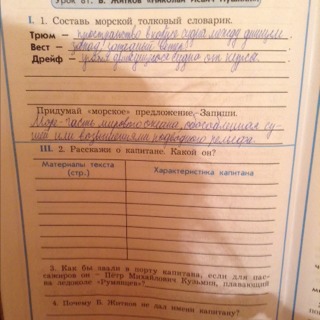 Урок 81. Б. Житков «Николай Исаич Пушкин»
I. 1. Составь морской толковый словарик.
Трюм – пространство внутри судна между днищем
Вест – запад, западный ветер
Дрейф – судна от курса
Придумай «морское» предложение. Запиши.
Море-часть мирового океана, обособленная су-
шей или возвышениями подводного рельефа
III. 2. Расскажи о капитане. Какой он?
Материалы текста
(стр.)
Характеристика капитана
3. Как бы звали в порту капитана, если для пас-
сажиров он – Пётр Михайлович Кузьмин, плавающий
на ледоколе «Румянцев»?
4. Почему Б. Житков не дал имени капитану?